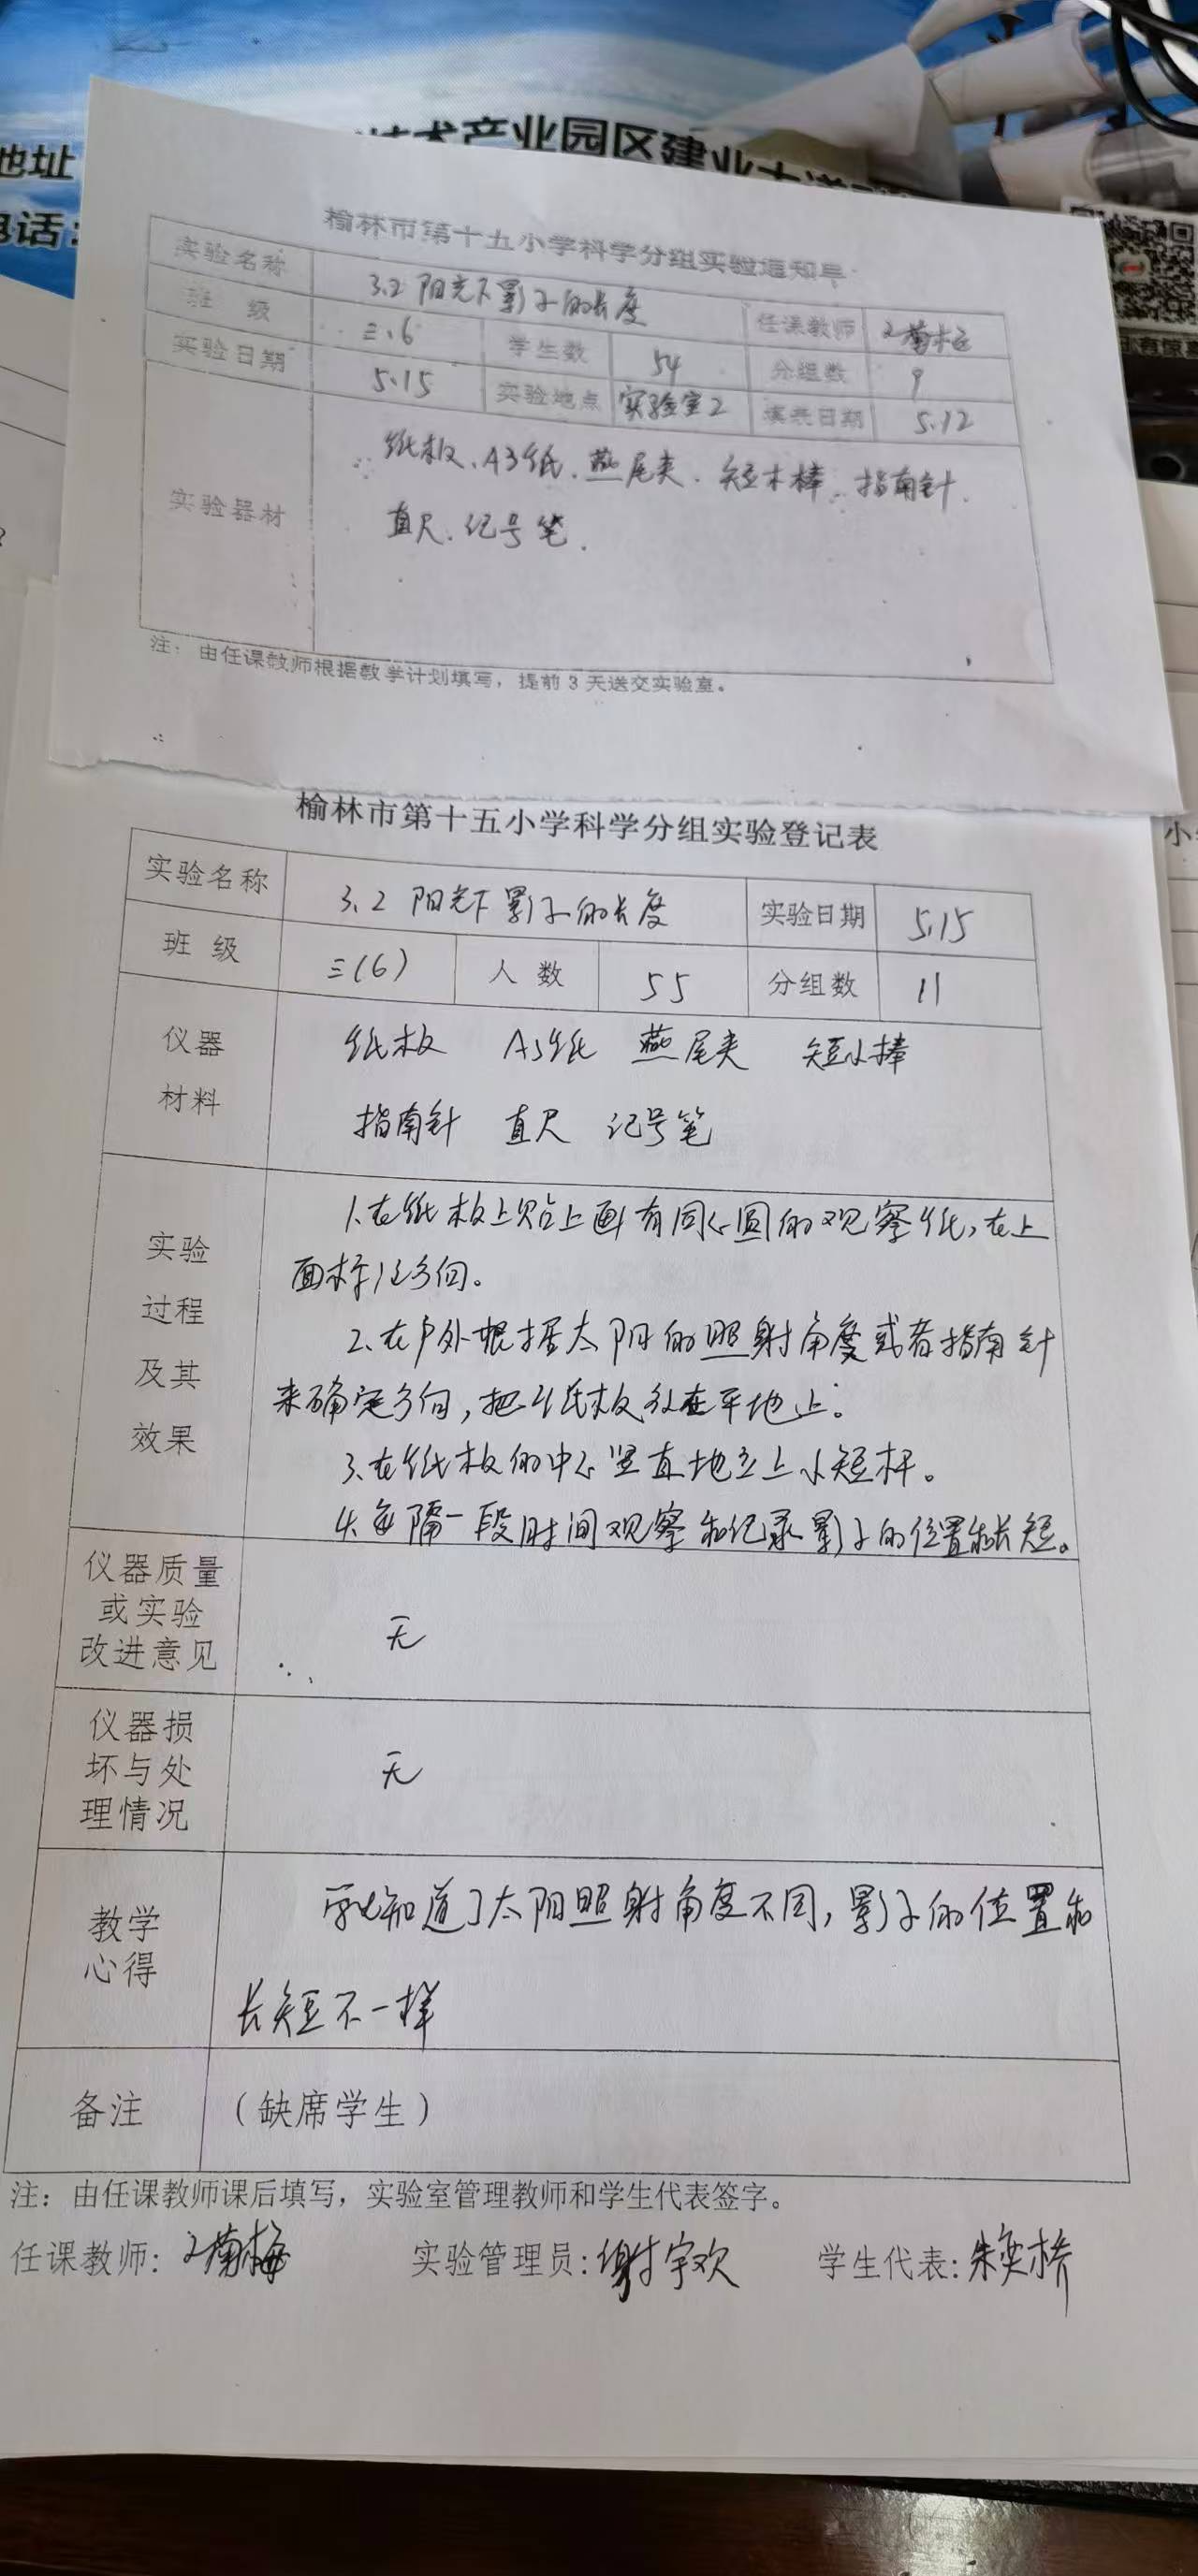 地址
技术产业园区建业大道
电话:
榆林市第十五小学科学分组实验通知单
实验名称 3.2 阳光下影子的长度 任课教师
班 级 三.6 学生数 54 分组数 9
实验日期 5.15 实验地点 实验室2 填表日期 5.12
实验器材 纸板、A3纸、燕尾夹、短木棒、指南针、
直尺、记号笔.
注：由任课教师根据教学计划填写，提前 3 天送交实验室。
榆林市第十五小学科学分组实验登记表
实验名称 3.2 阳光下影子的长度 实验日期 5.15
班 级 三(6) 人 数 55 分组数 11
仪器 纸板 A3纸 燕尾夹 短小棒
材料 指南针 直尺 记号笔
实验 过程 及其 效果
1.在纸板上贴上画有同心圆的观察纸,在上
面标注方向。
2.在户外根据太阳的照射角度或者指南针
来确定方向,把纸板放在平地上。
3.在纸板的中心竖直地立上小短杆。
4.每隔一段时间观察和记录影子的位置和长短。
仪器质量
或实验 无
改进意见
仪器损
坏与处 无
理情况
教学 心得
学生知道了太阳照射角度不同,影子的位置和
长短不一样
备注 （缺席学生）
注：由任课教师课后填写，实验室管理教师和学生代表签字。
任课教师: 实验管理员:谢宇欢 学生代表:朱奕桥